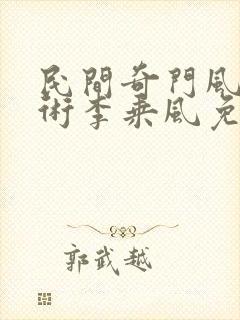 民間奇門風
術李乘風免
郭武越